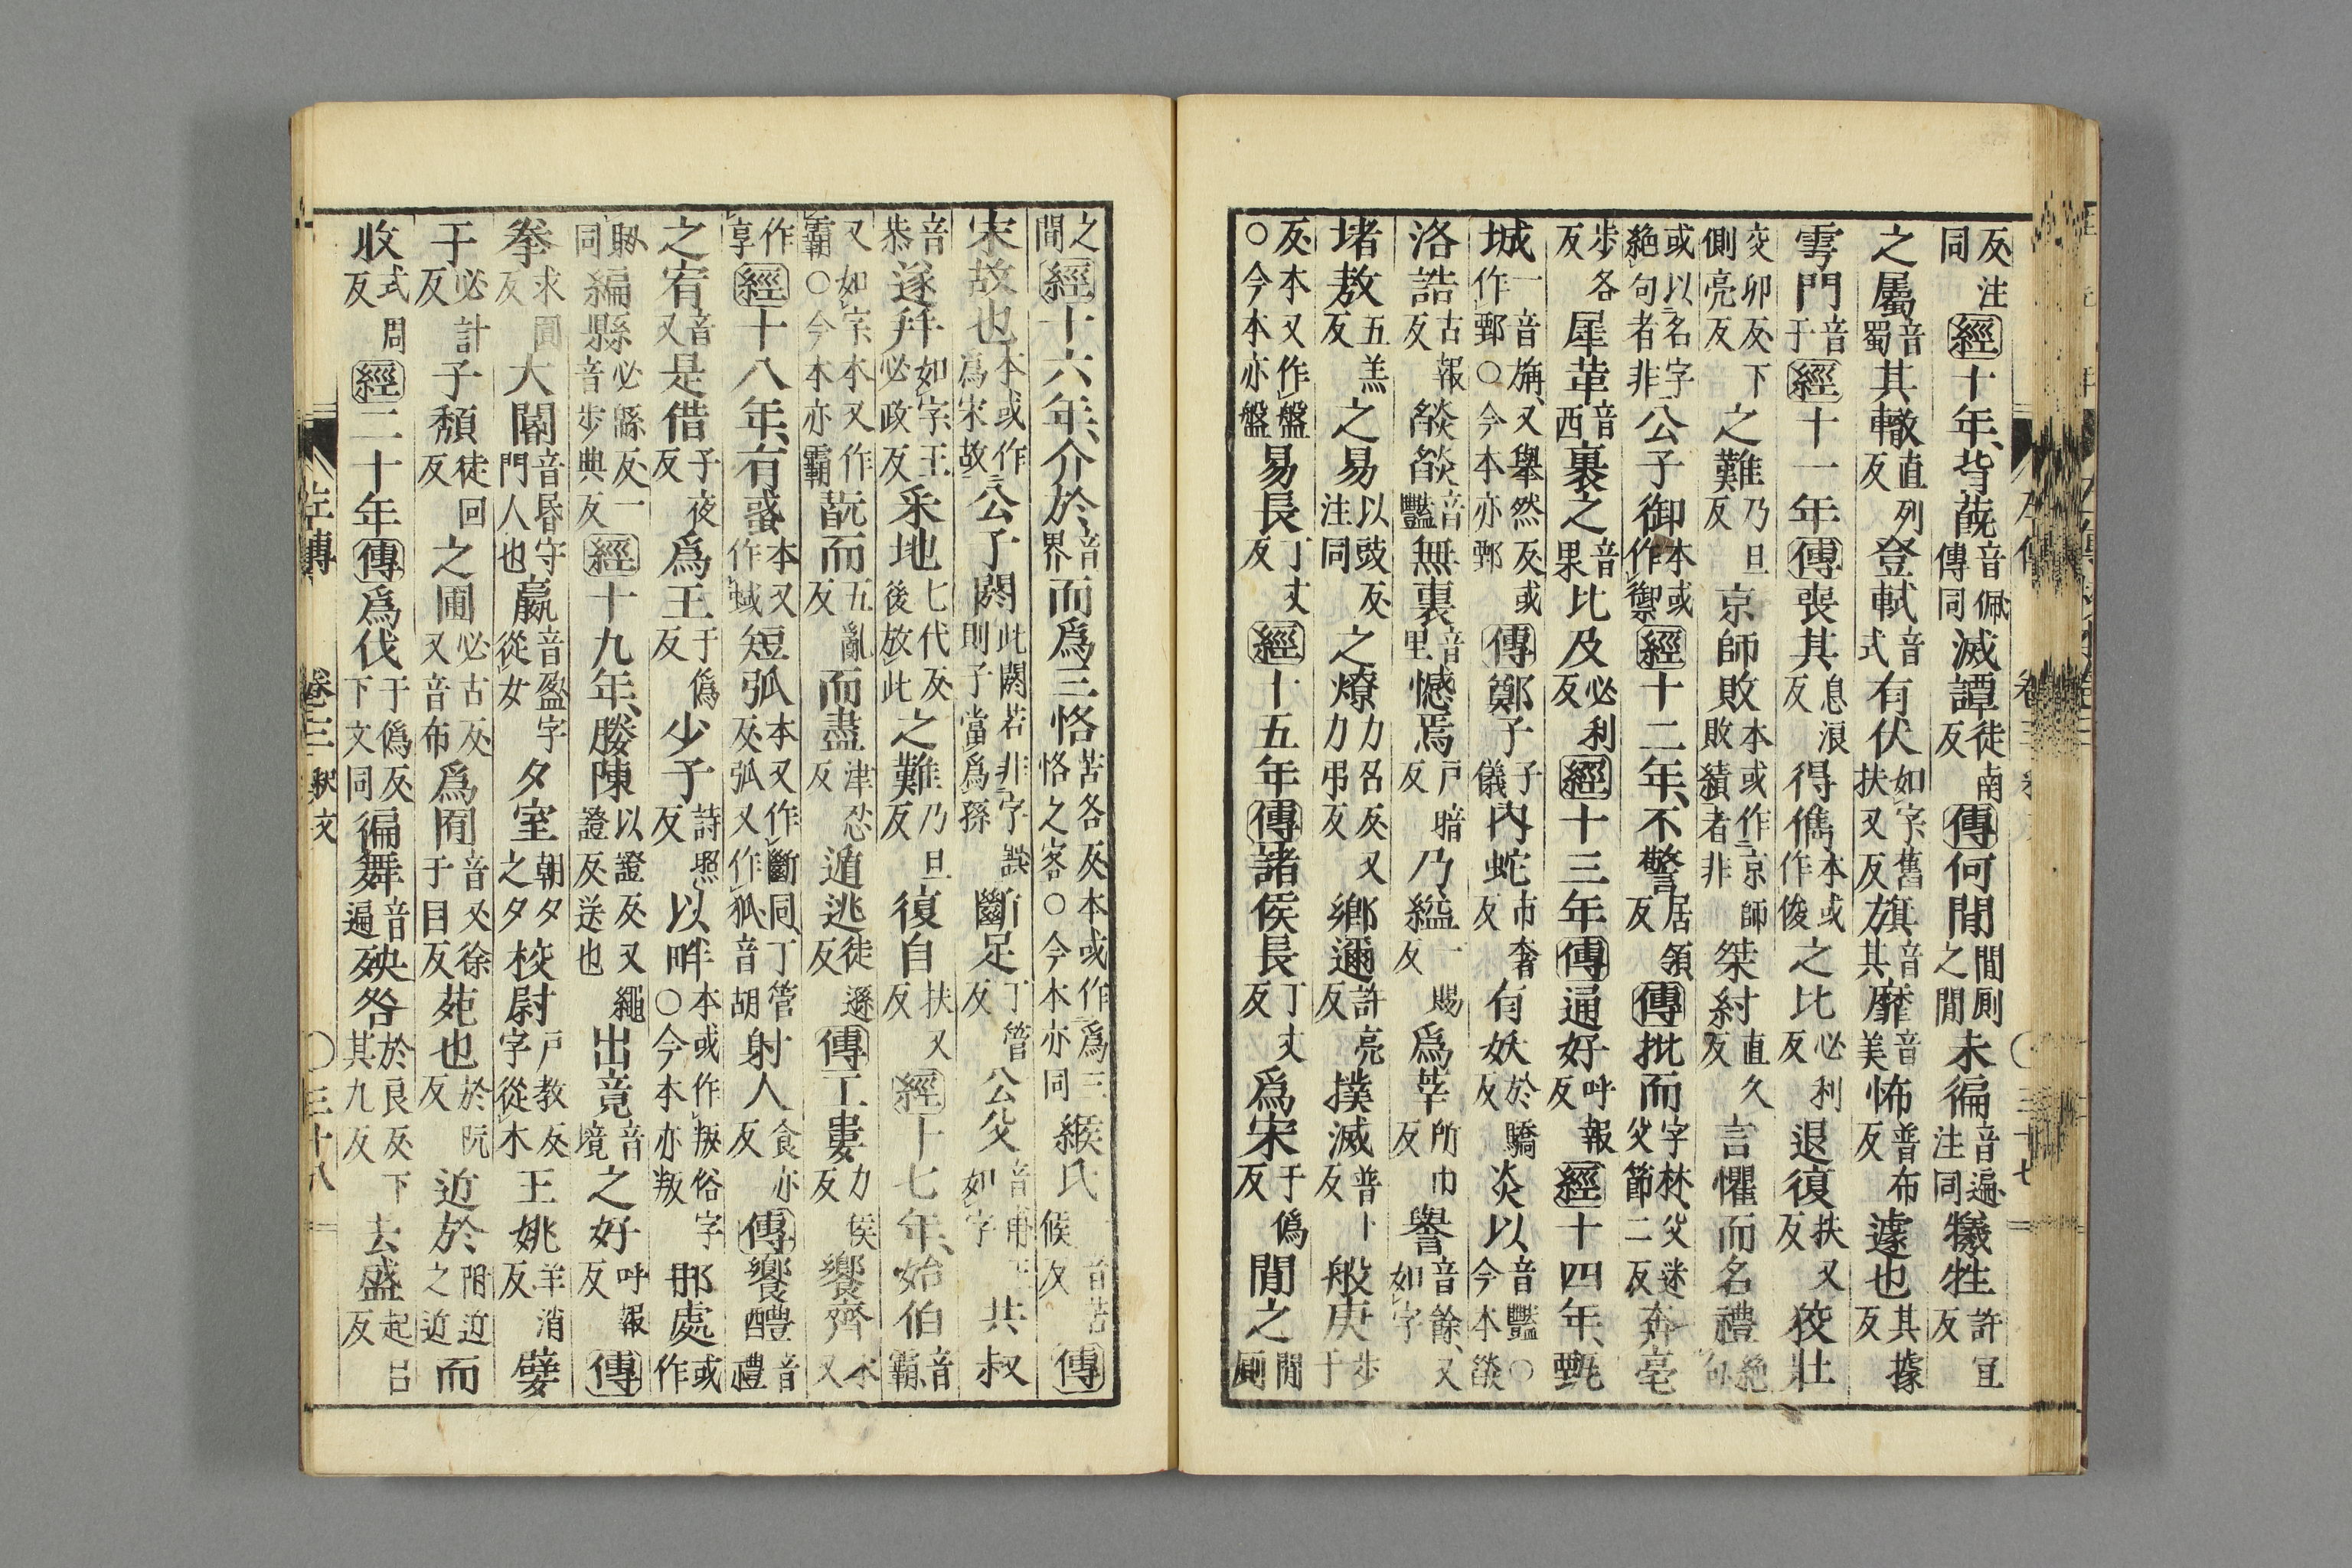 反注同經十年、背蔇音佩傳同滅譚徒南反傳何閒閒厠之閒未徧音遍注同犧牲許宜反
之屬音蜀其轍直列反登軾音式有伏如字舊扶又反旗音其靡音美怖普布反遽也其據反
雩門音于經十一年傳喪其息浪反得儁本或作俊之比必利反退復扶又反狡壯
交卯反下側亮反之難乃旦反京師敗本或作京師敗績者非桀紂直久反言懼而名禮絶句
或以名字絶句者非公子御本或作禦經十二年、不警居領反傳批而字林、父迷父節二反奔亳
步各反犀革音西裹之音果比及必利反經十三年傳通好呼報反經十四年、甄
城一音旃、又舉然反或作鄄○今本亦鄄傳鄭子子儀內蛇市奢反有妖於驕反炎以音豔○今本燄
洛誥古報反燄燄音豔無裏音里憾焉戸暗反乃縊一賜反爲莘所巾反譽音餘、又如字
堵敖五羔反之易以豉反注同之燎力召反又力弔反鄉邇許亮反撲滅普卜反般庚步干
反本又作盤○今本亦盤易長丁丈反經十五年傳諸侯長丁丈反爲宋于僞反閒之閒厠
之閒經十六年、介於音界而爲三恪苦各反本或作爲三恪之客○今本亦同緱氏苦侯反傳
宋故也本或作爲宋故公子閼此閼若非字誤則子當爲孫斷足丁管反公父音甫如字共叔
音恭遂幷如字王必政反采地七代反後放此之難乃旦反復自扶又反經十七年、始伯音霸、
又如字本又作霸○今本亦霸翫而五亂反而盡津忍反遁逃徒遜反傳工婁力侯反饗齊本又
作享經十八年、有蜮本又作蜮短弧本又作斷同丁管反弧又作狐音胡射人食亦反傳饗醴音禮
之宥音又是借子夜反爲王于僞反少子詩照反以畔本或作叛俗字○今本亦叛那處或作
𨙻同編縣必緜反一音步典反經十九年、媵陳以證反又繩證反送也出竟音境之好呼報反傳
拳求圓反大閽音昬守門人也嬴音盈字從女夕室朝夕之夕校尉戸教反字從木王姚羊消反嬖
于必計反子頹徒回反之圃必古反又音布爲囿音又徐于目反苑也於阮反近於附近之近而
收式周反經二十年傳爲伐于僞反下文同徧舞音遍殃咎於良反下其九反去盛起呂反
左傳 卷三 釈文 ○三十八